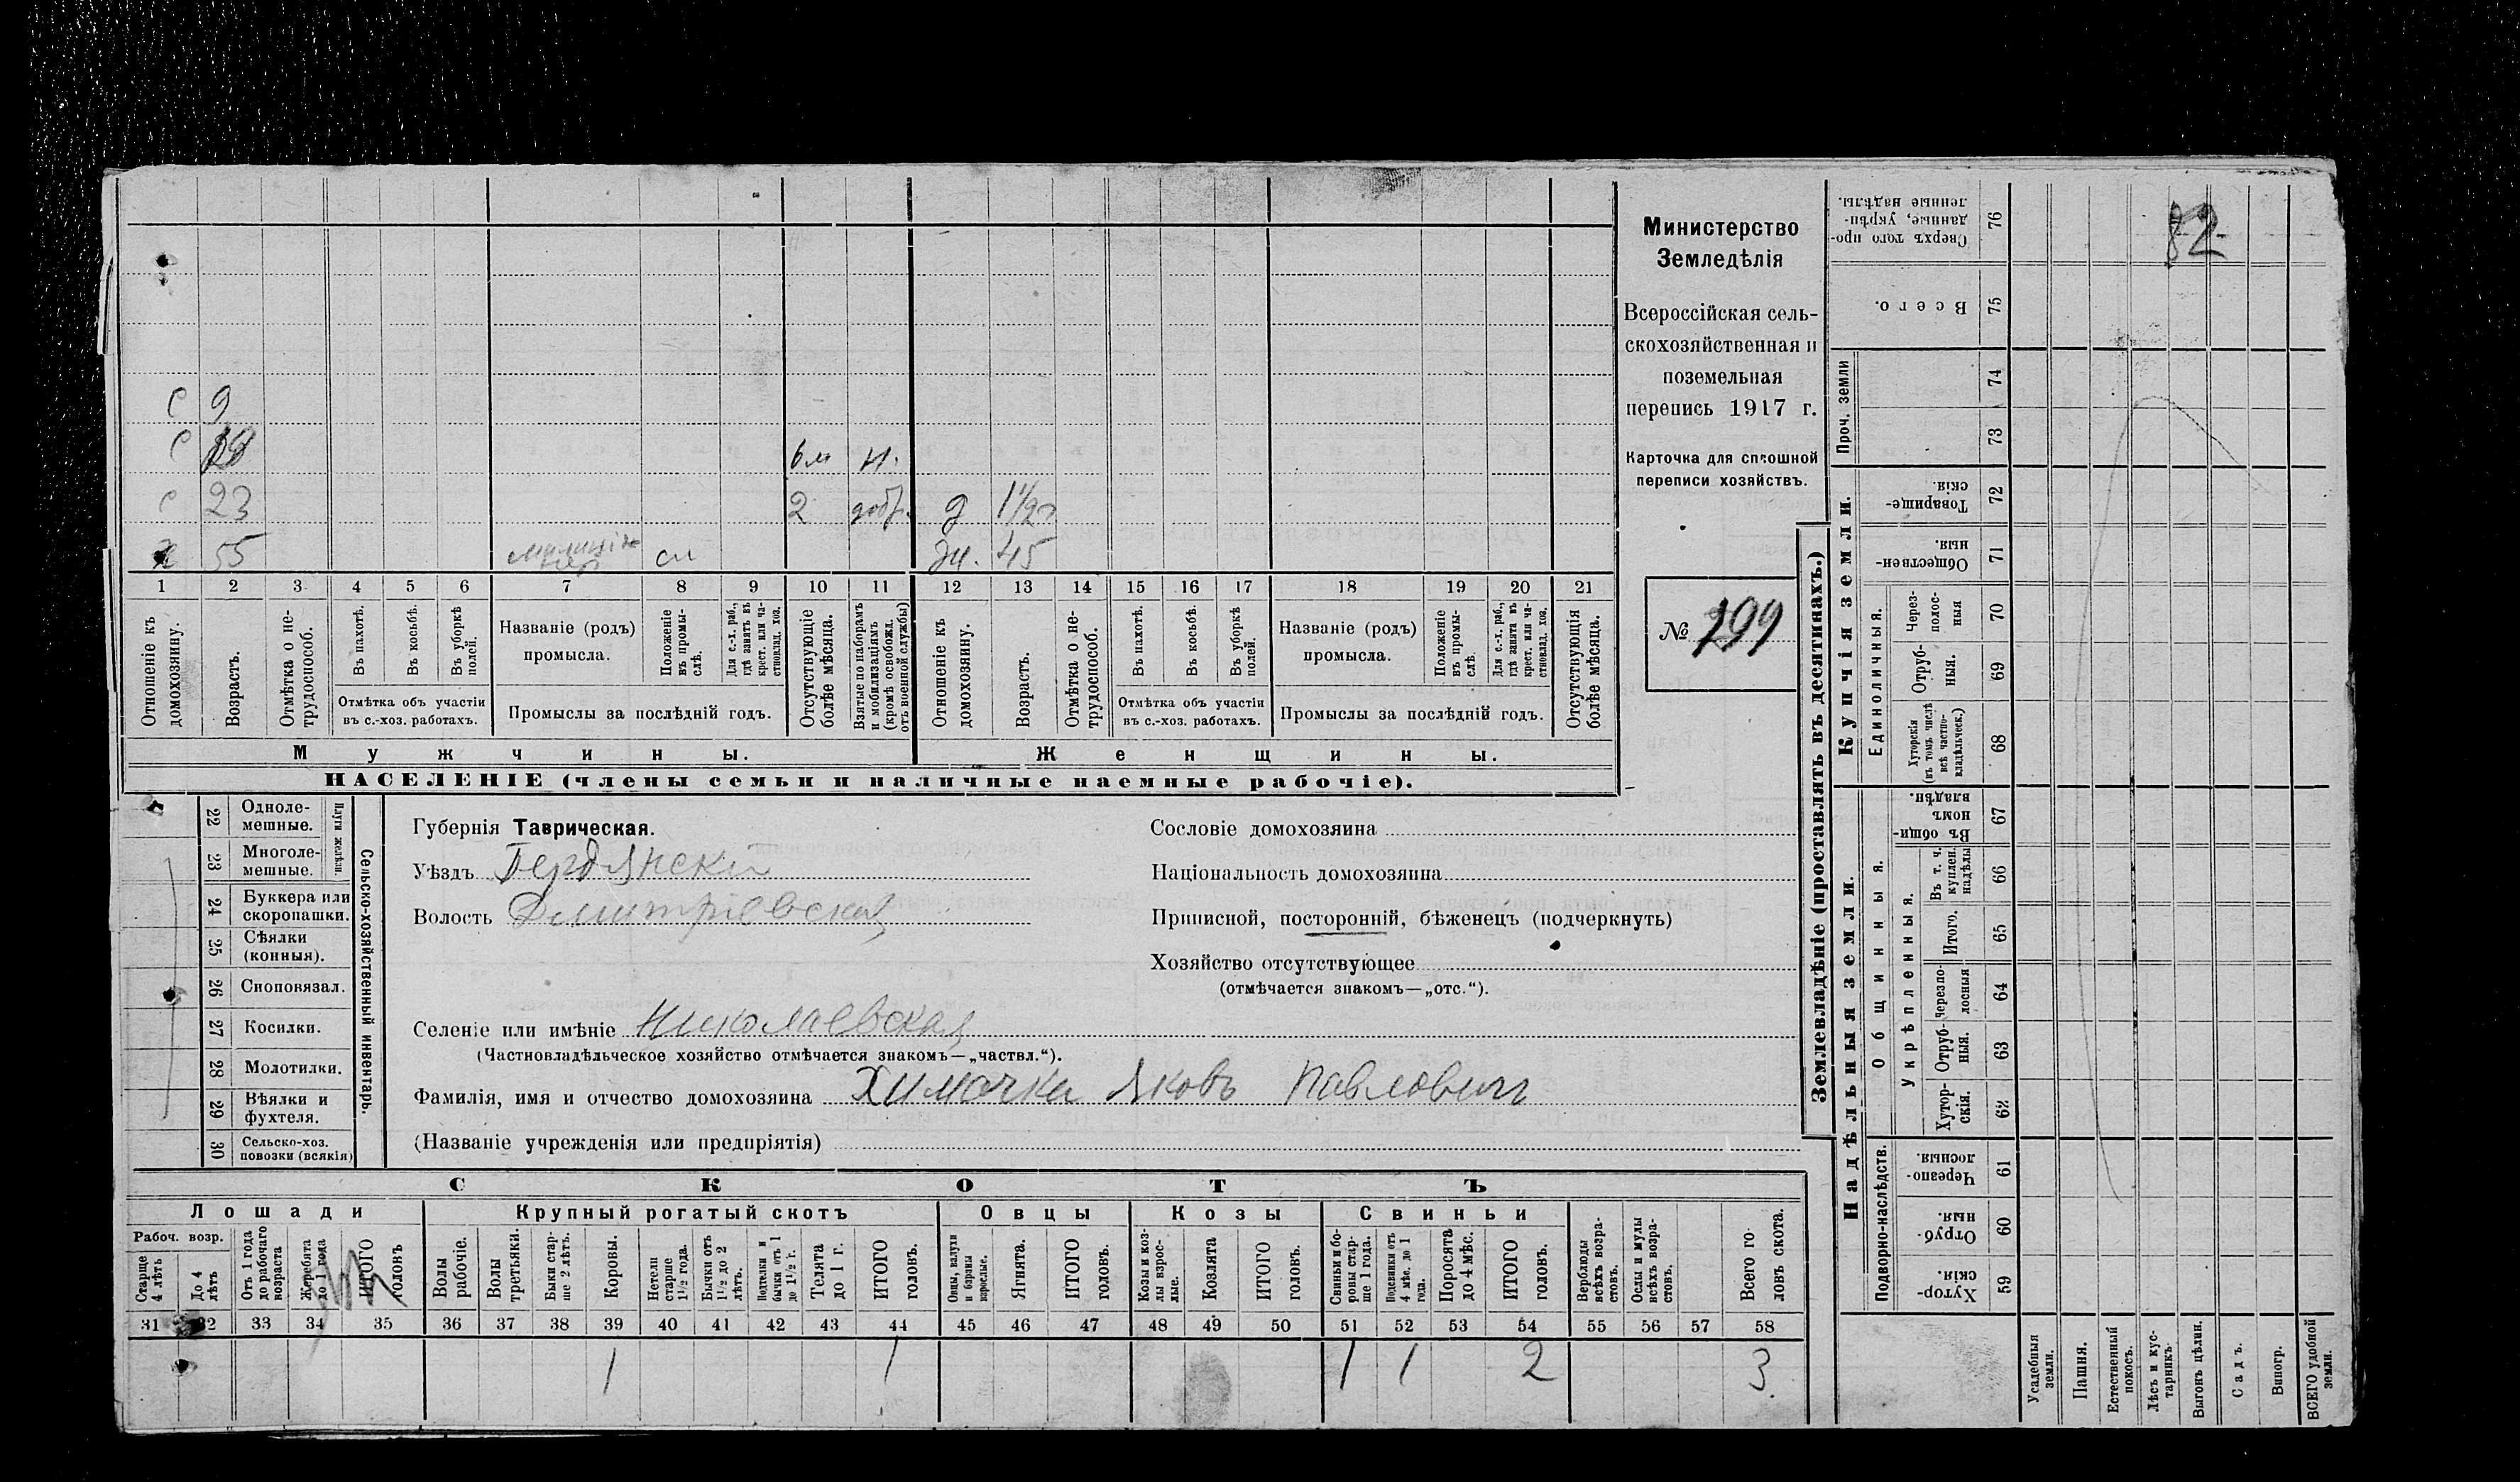 82
с 9
с 6м н.
с 23 2 добр. д 1 1/2
х 55 сл ж. 45
1 2 3 4 5 6 7 8 9 10 11 12 13 14 15 16 17 18 19 20 21
Отношеніе къ домохозяину.
Возрастъ.
Отмѣтка о не-
трудоспособ.
Въ пахотѣ.
Въ косьбѣ.
Въ уборкѣ
полей.
Отмѣтка объ участіи
въ с.-хоз. работахъ.
Названіе (родъ)
промысла.
Положеніе
въ промы-
слѣ.
Для с.-х. раб.,
гдѣ занятъ въ
крест. или ча-
стновлад. хоз.
Промыслы за послѣдній годъ.
Отсутствующіе
болѣе мѣсяца.
Взятые по наборамъ
и мобилизаціямъ
(кромѣ освобожд.
отъ военной службы)
Отношеніе къ
домохозяину.
Возрастъ.
Отмѣтка о не-
трудоспособ.
Въ пахотѣ.
Въ косьбѣ.
Въ уборкѣ
полей.
Отмѣтка объ участіи
въ с.-хоз. работахъ.
Названіе (родъ)
промысла.
Положеніе
въ промы-
слѣ.
Для с.-х. раб.,
гдѣ занятъ въ
крест. или ча-
стновлад. хоз.
Промыслы за послѣдній годъ.
Отсутствующія
болѣе мѣсяца.
Мужчины. Женщины.
НАСЕЛЕНІЕ (члены семьи и наличные наемные рабочіе).
Министерство
Земледѣлія
Всероссійская сель-
скохозяйственная и
поземельная
перепись 1917 г.
Карточка для сплошной
переписи хозяйствъ.
№ 299
22 Одноле-
мешные.
23 Многоле-
мешные.
Плуги желѣзн.
24 Буккера или
скоропашки.
25 Сѣялки
(конныя).
26 Сноповязал.
27 Косилки.
28 Молотилки.
29 Вѣялки и
фухтеля.
30 Сельско-хоз.
повозки (всякія)
Сельско-хозяйственный инвентарь.
Губернія Таврическая.
Уѣздъ Бердянскій
Волость Дмитріевская
Селеніе или имѣніе Николаевская
(Частновладѣльческое хозяйство отмѣчается знакомъ—„частвл.“).
Фамилія, имя и отчество домохозяина Химочка Яковъ Павловичъ
(Названіе учрежденія или предпріятія)
Сословіе домохозяина
Національность домохозяина
Приписной, посторонній, бѣженецъ (подчеркнуть)
Хозяйство отсутствующее
(отмѣчается знакомъ—„отс.“).
СКОТЪ
Лошади Крупный рогатый скотъ Овцы Козы Свиньи
Рабоч. возр.
Старше
4 лѣтъ
До 4
лѣтъ
Отъ 1 года
до рабочаго
возраста
Жеребята
до 1 года
ИТОГО
головъ
Волы
рабочіе.
Волы
третьяки.
Быки стар-
ше 2 лѣтъ.
Коровы.
Нетели
старше
1½ года.
Бычки отъ
1½ до 2
лѣтъ.
Подтелки и
бычки отъ 1
до 1½ г.
Телята
до 1 г.
ИТОГО
головъ.
Овцы, валухи
и бараны
взрослые.
Ягнята.
ИТОГО
головъ.
Козы и коз-
лы взрос-
лые.
Козлята
ИТОГО
головъ.
Свиньи и бо-
ровы стар-
ше 1 года.
Подсвинки отъ
4 мѣс. до 1
года.
Поросята
до 4 мѣс.
ИТОГО
головъ.
Верблюды
всѣхъ возра-
стовъ.
Ослы и мулы
всѣхъ возра-
стовъ.
Всего го-
ловъ скота.
31 32 33 34 35 36 37 38 39 40 41 42 43 44 45 46 47 48 49 50 51 52 53 54 55 56 57 58
1 1 1 1 2 3
Землевладѣніе (проставлять въ десятинахъ.)
Сверхъ того про-
данные, укрѣп-
ленные надѣлы.
76
Всего.
75
Проч. земли
74
73
Купчія земли.
Товарище-
скія.
72
Обществен-
ныя.
71
Единоличныя.
Через-
полос-
ныя
70
Отруб-
ныя.
69
Хуторскія
(въ томъ числѣ
всѣ частно-
владѣльческ.)
68
Надѣльныя земли.
Общинныя.
Въ общин-
номъ
владѣн.
67
Укрѣпленныя.
Въ т. ч.
куплен.
надѣлы
66
Итого.
65
Черезпо-
лосныя
64
Отруб-
ныя.
63
Хутор-
скія.
62
Подворно-наслѣдств.
Черезпо-
лосныя
61
Отруб-
ныя.
60
Хутор-
скія.
59
Усадебныя
земли.
Пашня.
Естественный
покосъ.
Лѣсъ и кус-
тарникъ.
Выгонъ цѣлин.
Садъ.
Виногр.
ВСЕГО удобной
земли.